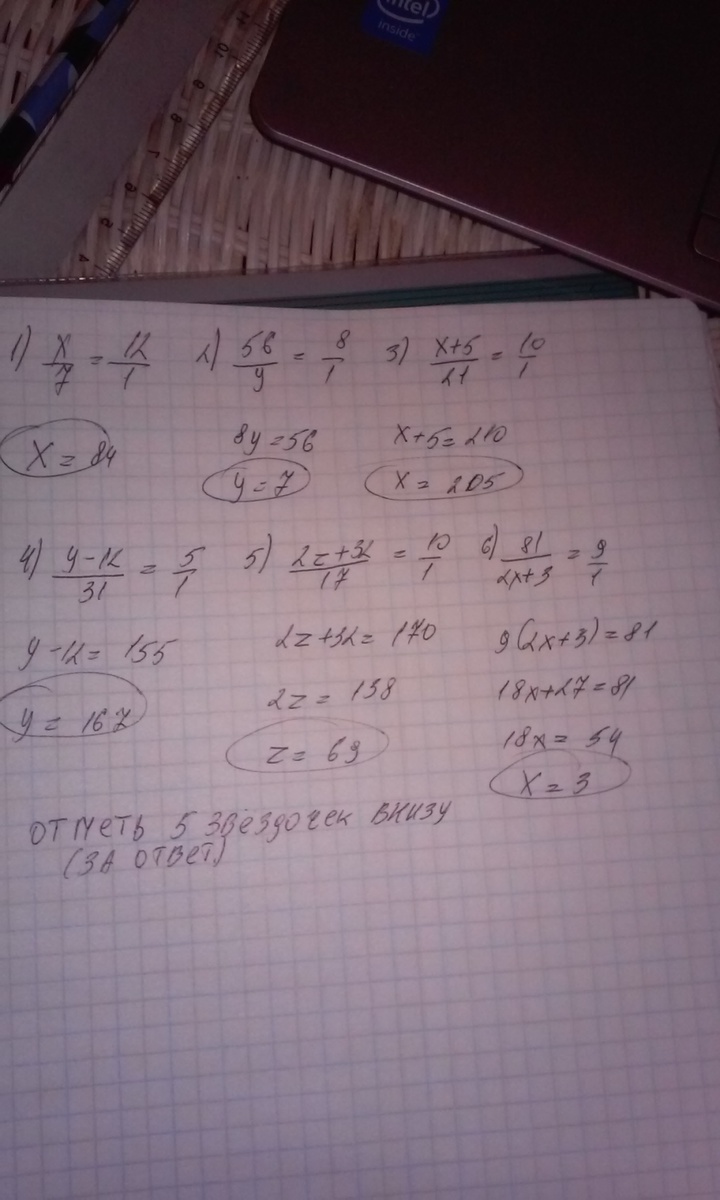 intel
inside
1) x/7 = 12/1 2) 56/y = 8/1 3) x+5/21 = 10/1
8y=56 x+5=210
x = 84 y=7 x = 205
4) y-12/31 = 5/1 5) 2z+32/17 = 10/1 6) 81/2x+3 = 9/1
y-12= 155 2z+32= 170 9(2x+3)=81
2z= 138 18x+27=81
y= 167 z= 69 18x= 54
x=3
ОТМеТЬ 5 ЗВеЗДОЧеК ВНИЗУ
(ЗА ОТВеТ)